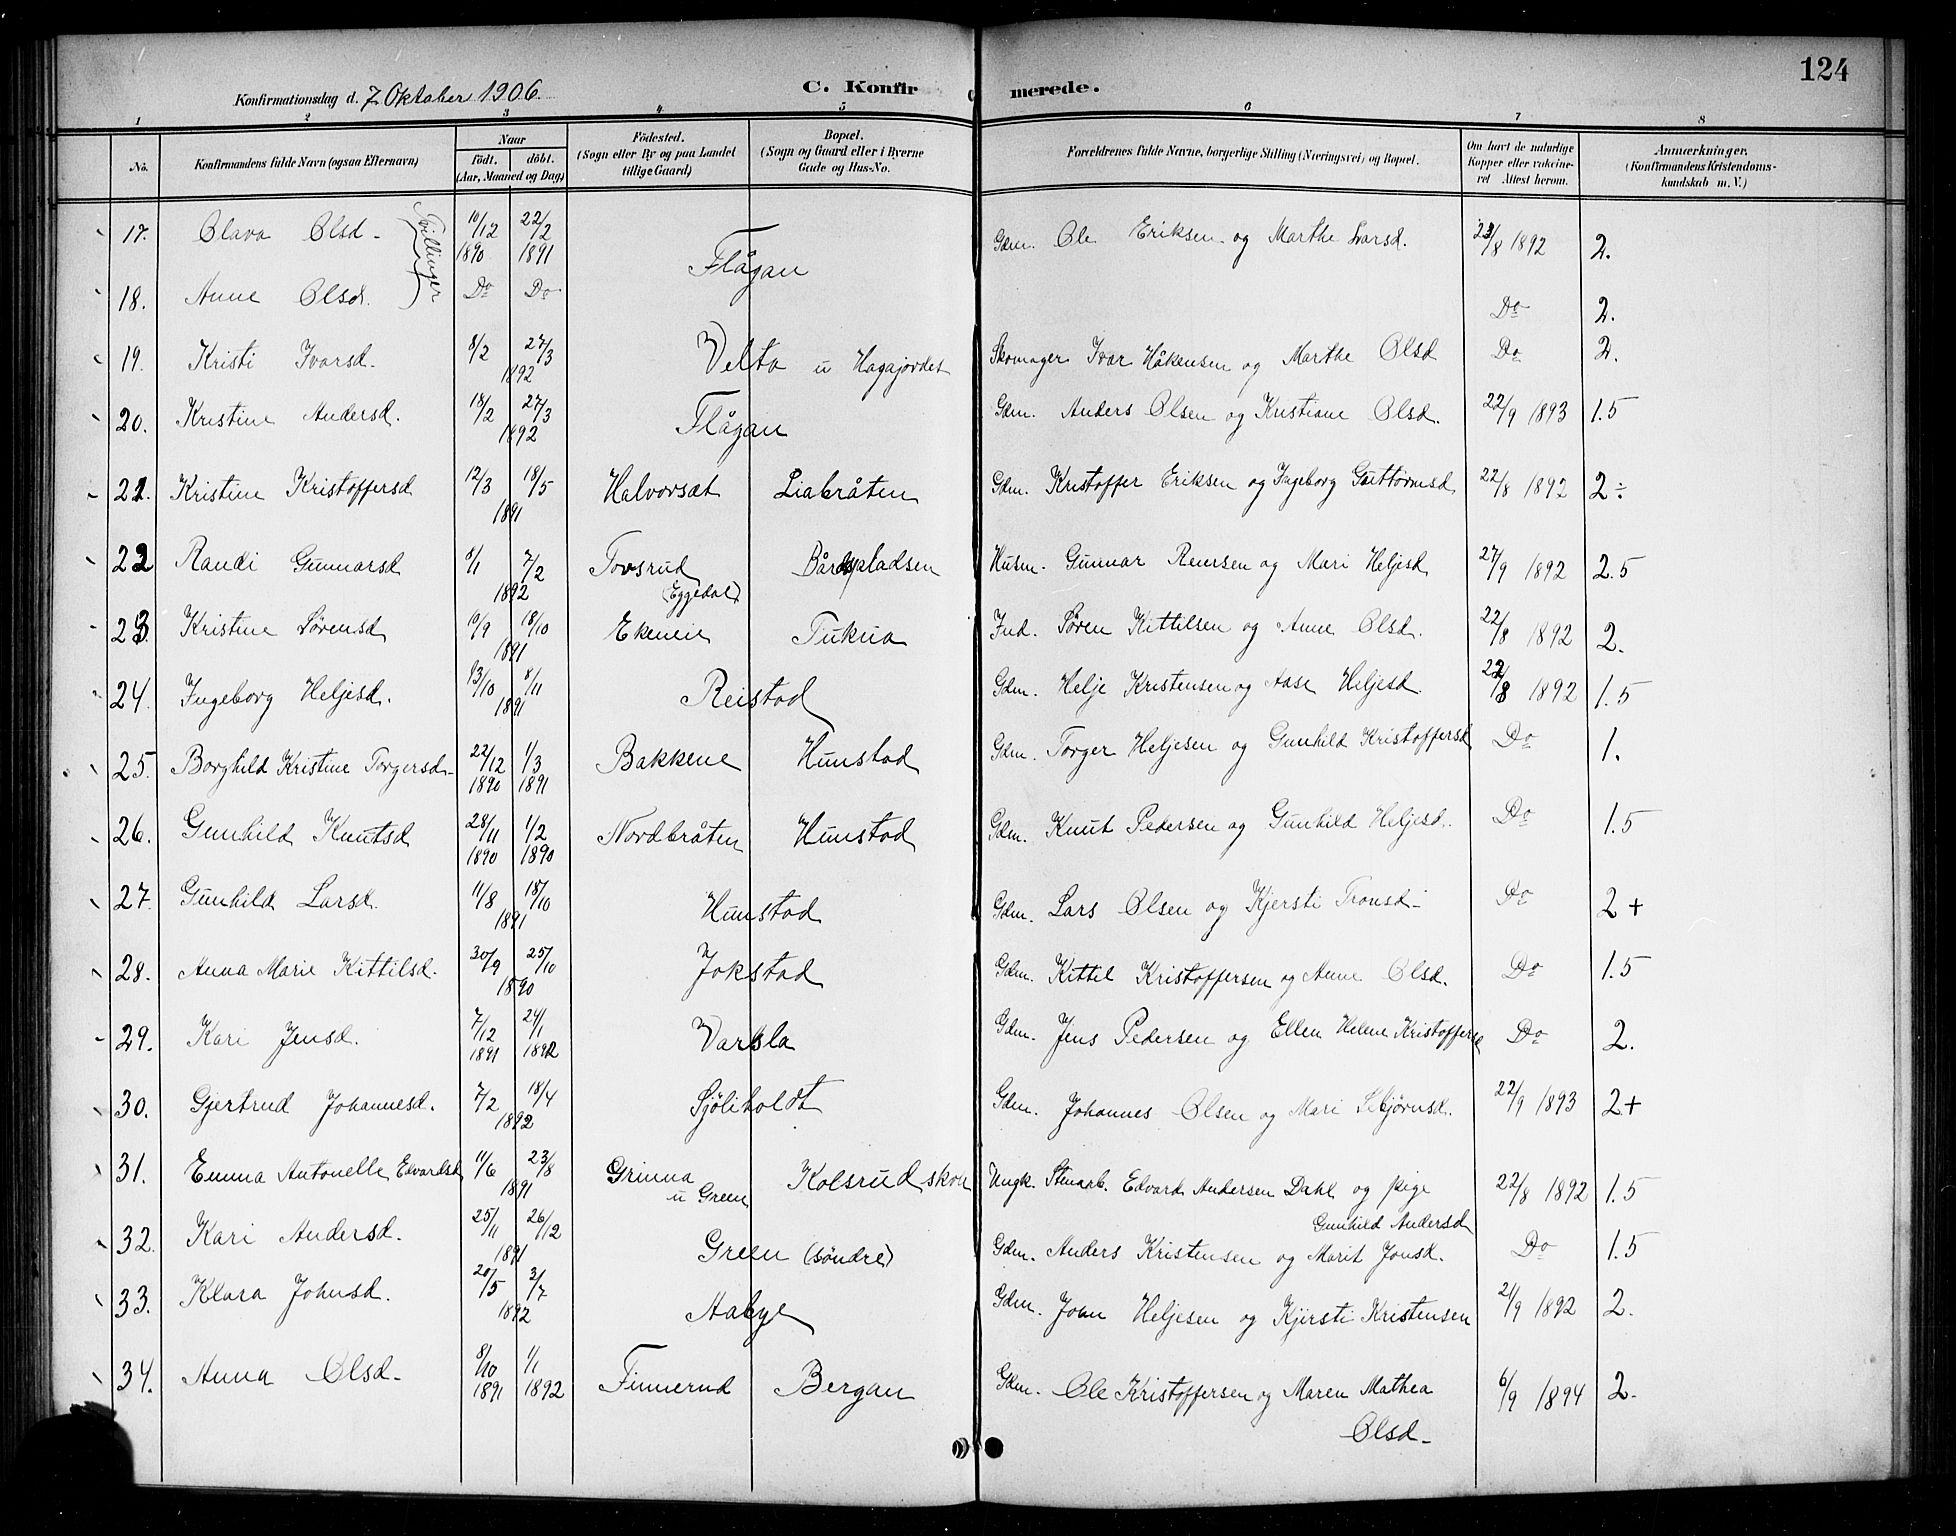 124
Konfirmationsdag d. 7 Oktober 1906.
C. Konfirmerede.
1 2 3 4 5 6 7 8
No.
Konfirmandens fulde Navn (ogsaa Efternavn)
Naar
födt. döbt.
(Aar, Maaned og Dag)
Födested.
(Sogn eller By og paa Landet
tillige Gaard)
Bopæl.
(Sogn og Gaard eller i Byerne
Gade og Hus-No.
Forældrenes fulde Navne, borgerlige Stilling (Næringsvei) og Bopæl.
Om havt de naturlige
Kopper eller vakcine-
ret Attest herom.
Anmærkninger.
(Konfirmandens Kristendoms-
kundskab m. V.)
17. Olava Olsd. Tvillinger 10/12 1890 22/2 1891 Flågan Gdm. Ole Eriksen og Marthe Ivarsd. 22/8 1892 2.
18. Anne Olsd. Do Do Do 2.
19. Kristi Ivarsd. 8/2 27/3 1892 Velta u Hagajordet Skomager Ivar Håkensen og Marthe Olsd Do 2.
20. Kristine Andersd. 18/2 27/3 1892 Flågan Gdm. Anders Olsen og Kristiane Olsd. 22/9 1893 1.5
21. Kristine Kristoffersd 12/3 18/5 1891 Halvorset Liabråten Gdm. Kristoffer Eriksen og Ingeborg Guttormsd 22/8 1892 2÷
22 Randi Gunnarsd 8/1 7/2 1892 Tovsrud (Eggedal) Bårdspladsen Husm. Gunnar Reiersen og Mari Heljesd 27/9 1892 2.5
23. Kristine Sørensd 10/9 18/10 1891 Ekeneie Tukua Ind. Søren Kittilsen og Anne Olsd. 22/8 1892 2.
24. Ingeborg Heljesd. 13/10 8/11 1891 Reistad Gdm. Helje Kristensen og Aase Heljesd. 22/8 1892 1.5
25. Borghild Kristine Torgersd- 22/12 1890 1/3 1891 Bakkene Hunstad Gdm. Torger Heljesen og Gunhild Kristoffersd Do 1.
26. Gunhild Knutsd 28/11 1890 1/2 1890 Nordbråten Hunstad Gdm. Knut Pedersen og Gunhild Heljesd. Do 1.5
27. Gunhild Larsd. 11/8 18/10 1891 Hunstad Gdm. Lars Olsen og Kjersti Tronsd- Do 2+
28. Anna Marie Kittilsd. 30/9 25/10 1890 Jokstad Gdm. Kittil Kristoffersen og Anne Olsd. Do 1.5
29. Kari Jensd. 7/12 1891 24/1 1892 Varsla Gdm. Jens Pedersen og Ellen Helene Kristoffersd Do 2.
30. Gjertrud Johannesd. 7/2 18/4 1892 Sjöliholdt Gdm. Johannes Olsen og Mari Sebjörnsd. 22/9 1893 2+
31. Emma Antonette Edvardsd 11/6 23/8 1891 Grimna u Green Kolsrud skole Ungk. Stenarb. Edvard Andersen Dahl og pige Gunhild Andersd 22/8 1892 1.5
32. Kari Andersd. 25/11 26/12 1891 Green (söndre) Gdm. Anders Kristensen og Marit Jonsd. Do 1.5
33. Klara Johnsd. 20/5 3/7 1892 Aabye Gdm. John Heljesen og Kjersti Kristensen 21/9 1892 2.
34. Anna Olsd- 8/10 1891 1/1 1892 Finnerud Bergan Gdm. Ole Kristoffersen og Maren Mathea Olsd- 6/9 1894 2.